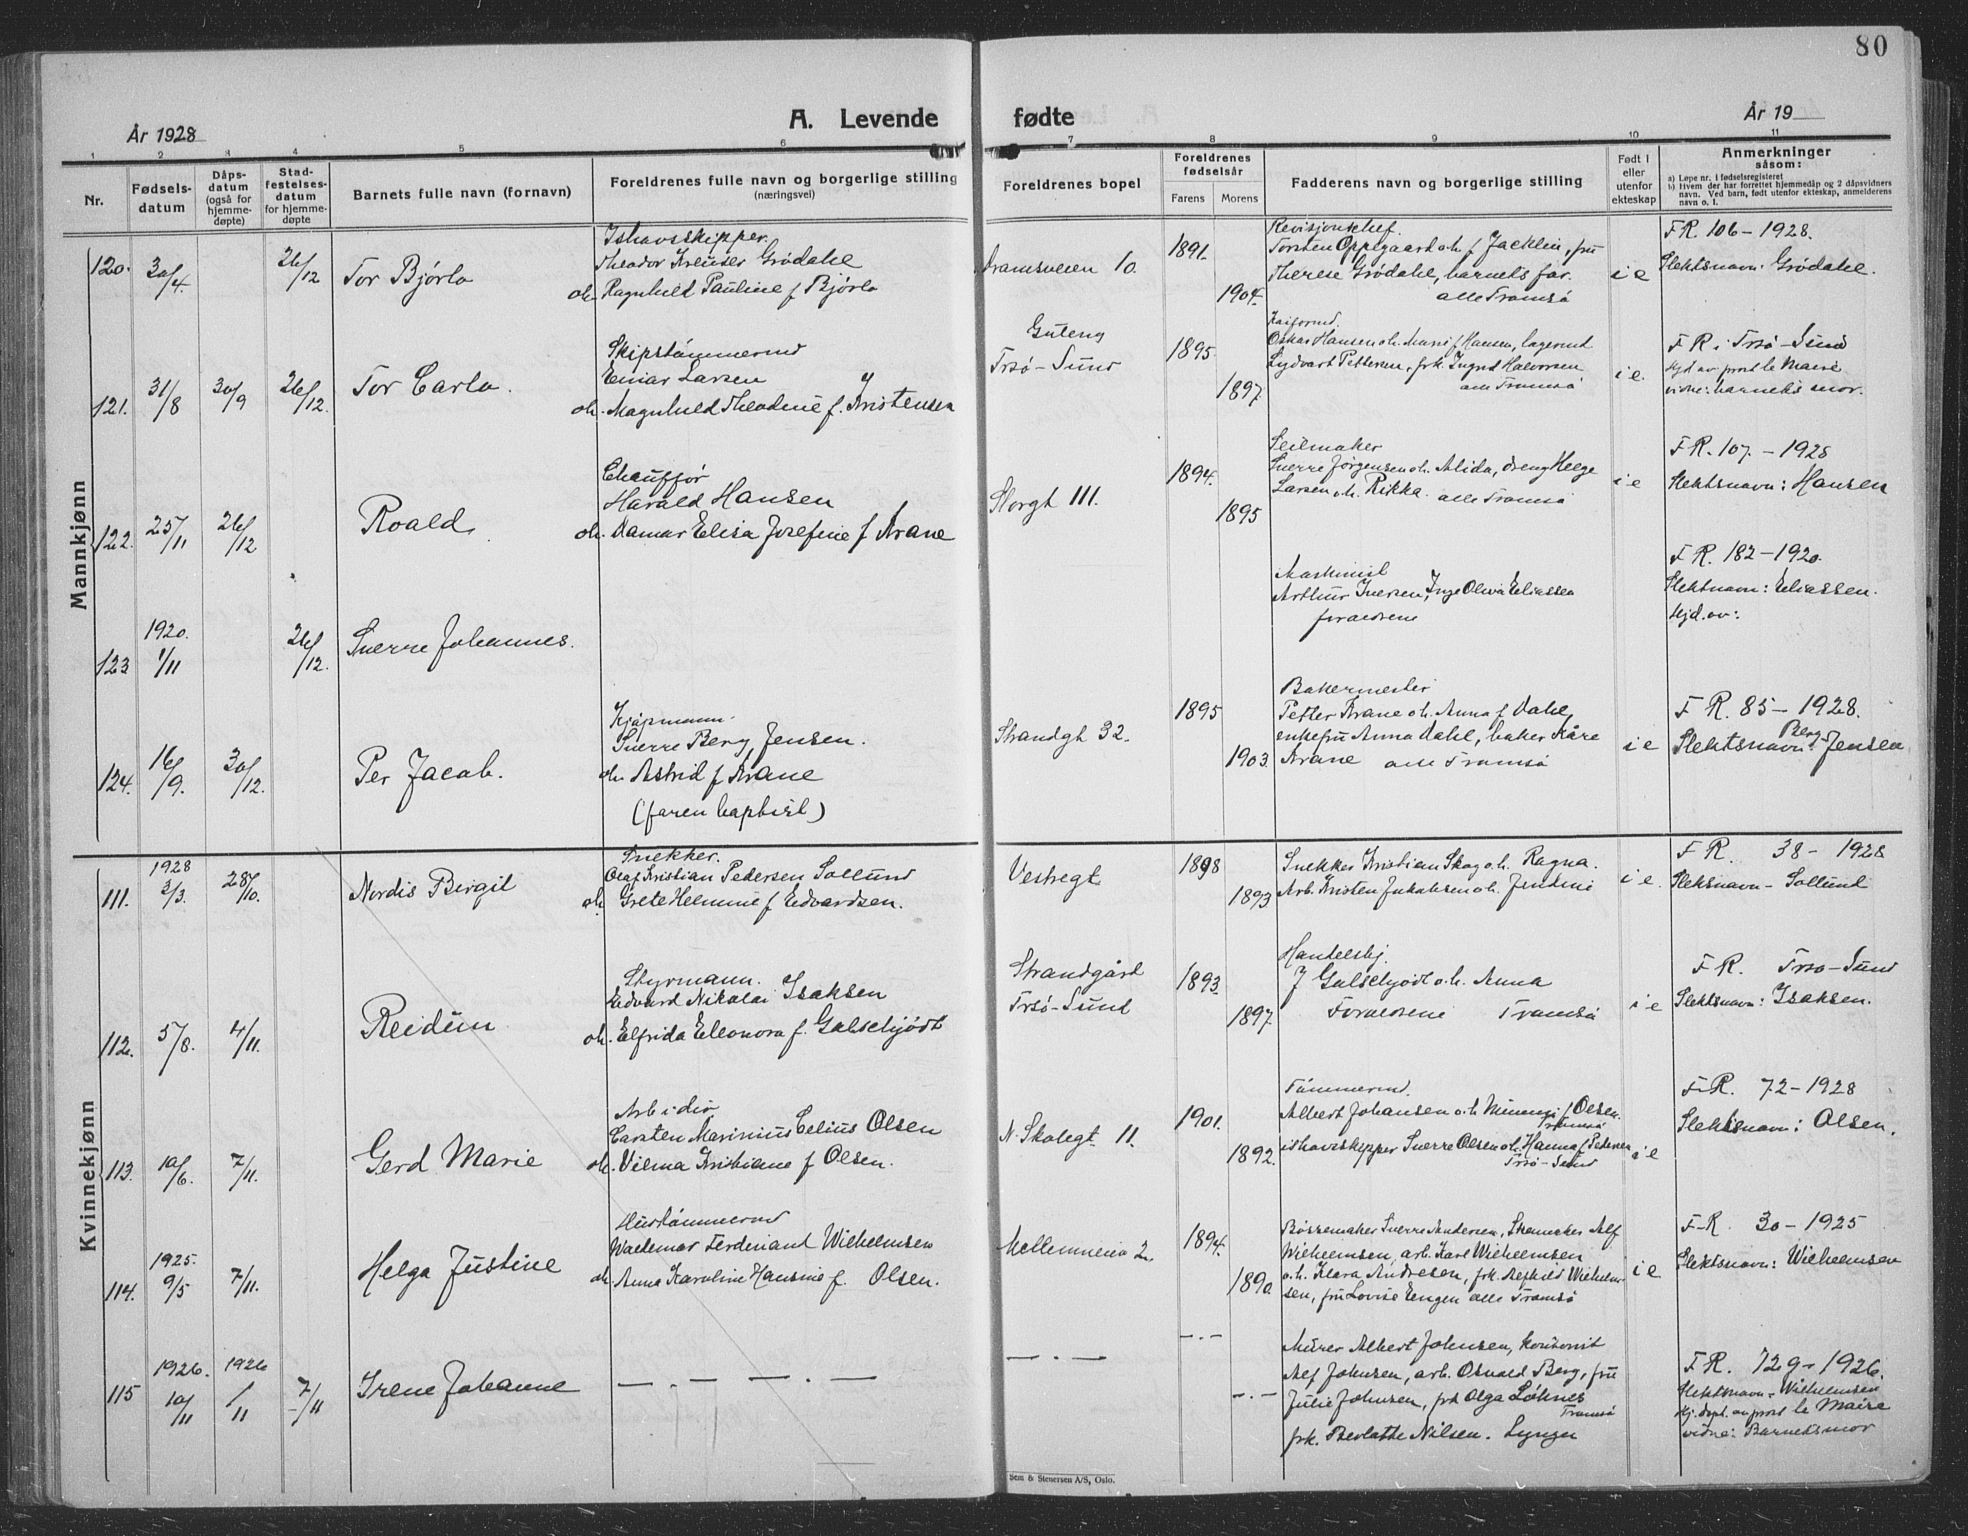 80
A. Levende fødte
År 1928
År 19
1 2 3 4 5 6 7 8 9 10 11
Nr.
Fødsels-
datum
Dåps-
datum
(også for
hjemme-
døpte)
Stad-
festelses-
datum
for hjemme-
døpte
Barnets fulle navn (fornavn)
Foreldrenes fulle navn og borgerlige stilling
(næringsvei)
Foreldrenes bopel
Foreldrenes
fødselsår
Farens Morens
Fadderens navn og borgerlige stilling
Født i
eller
utenfor
ekteskap
Anmerkninger
såsom:
a) Løpe nr. i fødselsregisteret
b) Hvem der har forrettet hjemmedåp og 2 dåpsvidners
navn. Ved barn, født utenfor ekteskap, anmelderens
navn o. l.
Mannkjønn
120. 30/4 26/12 Tor Bjørlo
Ishavsskipper.
Theodor Kreutser Grødahl
oh. Ragnhild Pauline f Bjørlo
Tramsveien 10.
1891.
1904.
Revisjonschef.
Torsten Oppegaard o.h. f Jacklin, fru
Therese Grødahl, barnets far.
alle Tromsö
i e
F.R. 106 – 1928.
Slektsnavn: Grödahl.
121. 31/8 30/9 26/12. Tor Carlo.
Skipstømmermd
Einar Larsen
oh. Magnhild Theodine f. Kristensen
Guteng
Trsö-Sund
1895.
1897
Kaiformd.
Oskar Hansen o.h. Marie f Hansen, lagermd
Sydvart Pettersen, frk. Ingrid Halvorsen
alle Tromsö
i e.
F R i Trsö-Sund
Hjd av prost le Maire
vidne: barnets mor.
122. 25/11 26/12 Roald
Chauffør
Harald Hansen
oh. Damar Elisa Josefine f Arane
Storgt 111.
1894.
1895
Seilmaker
Sverre Jørgensen o.h. Alida, dreng Helge
Larsen o.h. Rikka. alle Tromsö
i e
F R. 107. – 1928
Slektsnavn: Hansen
123 1920. 1/11 26/12. Sverre Johannes.
Maskinist
Arthur Iversen, Inge Oliva Eliassen
foraldrene
F R. 182 – 1920.
Slektnavn: Eliassen.
Hjd. av:
124. 16/9. 30/12. Per Jacob.
Kjøpmann.
Sverre Berg Jensen.
oh. Astrid f Arane
(faren baptist)
Strandgt 32.
1895
1903.
Bakermester
Petter Arane o.h. Anna f Dahl,
enkefru Anna Dahl, baker Kåre
Arane alle Tromsö
i e
F R. 85 – 1928.
Slektsnavn: Berg Jensen
Kvinnekjønn
111. 1928 3/3. 28/10. Nordis Bergit
Snekker.
Olaf Kristian Pedersen Sollund
oh. Grete Helmine f Edvardsen.
Vestregt
1898
1893
Snekker Kristian Skog o.h. Ragna.
Arb. Kristen Jakobsen o.h. Jensine
i e.
F R. 38 – 1928
Slektsnavn – Sollund
112. 5/8. 4/11. Reidun
Styrmann.
Edvard Nikolai Isaksen
oh. Elfrida Eleonora f. Galschjödt
Strandgård
Trsö-Sund
1893.
1897.
Handelsbj.
J Galschjödt o.h. Anna
Foraldrene Tromsö
i e
F R. Trsö-Sund
Slektsnavn: Isaksen.
113. 10/6. 7/11. Gerd Marie
Arbeider
Carsten Marinius Celius Olsen
oh. Vilma Kristiane f Olsen.
N. Skolegt 11.
1901.
1892.
Tömmermd.
Albert Johansen o.h Minnni f Olsen.
Tromsö
ishavsskipper Sverre Olsen o.h. Hanna f Petersen
Trsö-Sund
i e
F-R. 72 – 1928
Slektsnavn: Olsen.
114. 1925. 9/5 7/11. Helga Justine
Hustømmermd
Waldemar Ferdinant Wilhelmsen
oh. Anna Karoline Hansine f. Olsen.
Mellemveien 2.
1894.
1890.
Børsemaker Sverre Andersen, Skomaker Alf
Wilhelmsen, arb. Karl Wilhelmsen
o.h. Klara Andresen, frk. Alfhild Wilhelm-
sen, fru Lovise Eengen alle Tromsö
i e
F-R 30 – 1925
Slektsnavn: Wilhelmsen
115 1926. 10/11 1926 1/11 7/11 Irene Johanne
— . — . — . —
— . —
— . —
— . —
Murer Albert Johnsen, kontorist
Alf Johnsen, arb. Osvald Berg, fru
Julie Johnsen, frk Olga Løknes
Tromsö
frk. Berlotte Nilsen. Lyngen
F R. 729 – 1926.
Slektsnavn – Wilhelmsen
Hj. døpt av prost le Maire
vidne: Barnets mor
Sem & Stenersen A/S, Oslo.